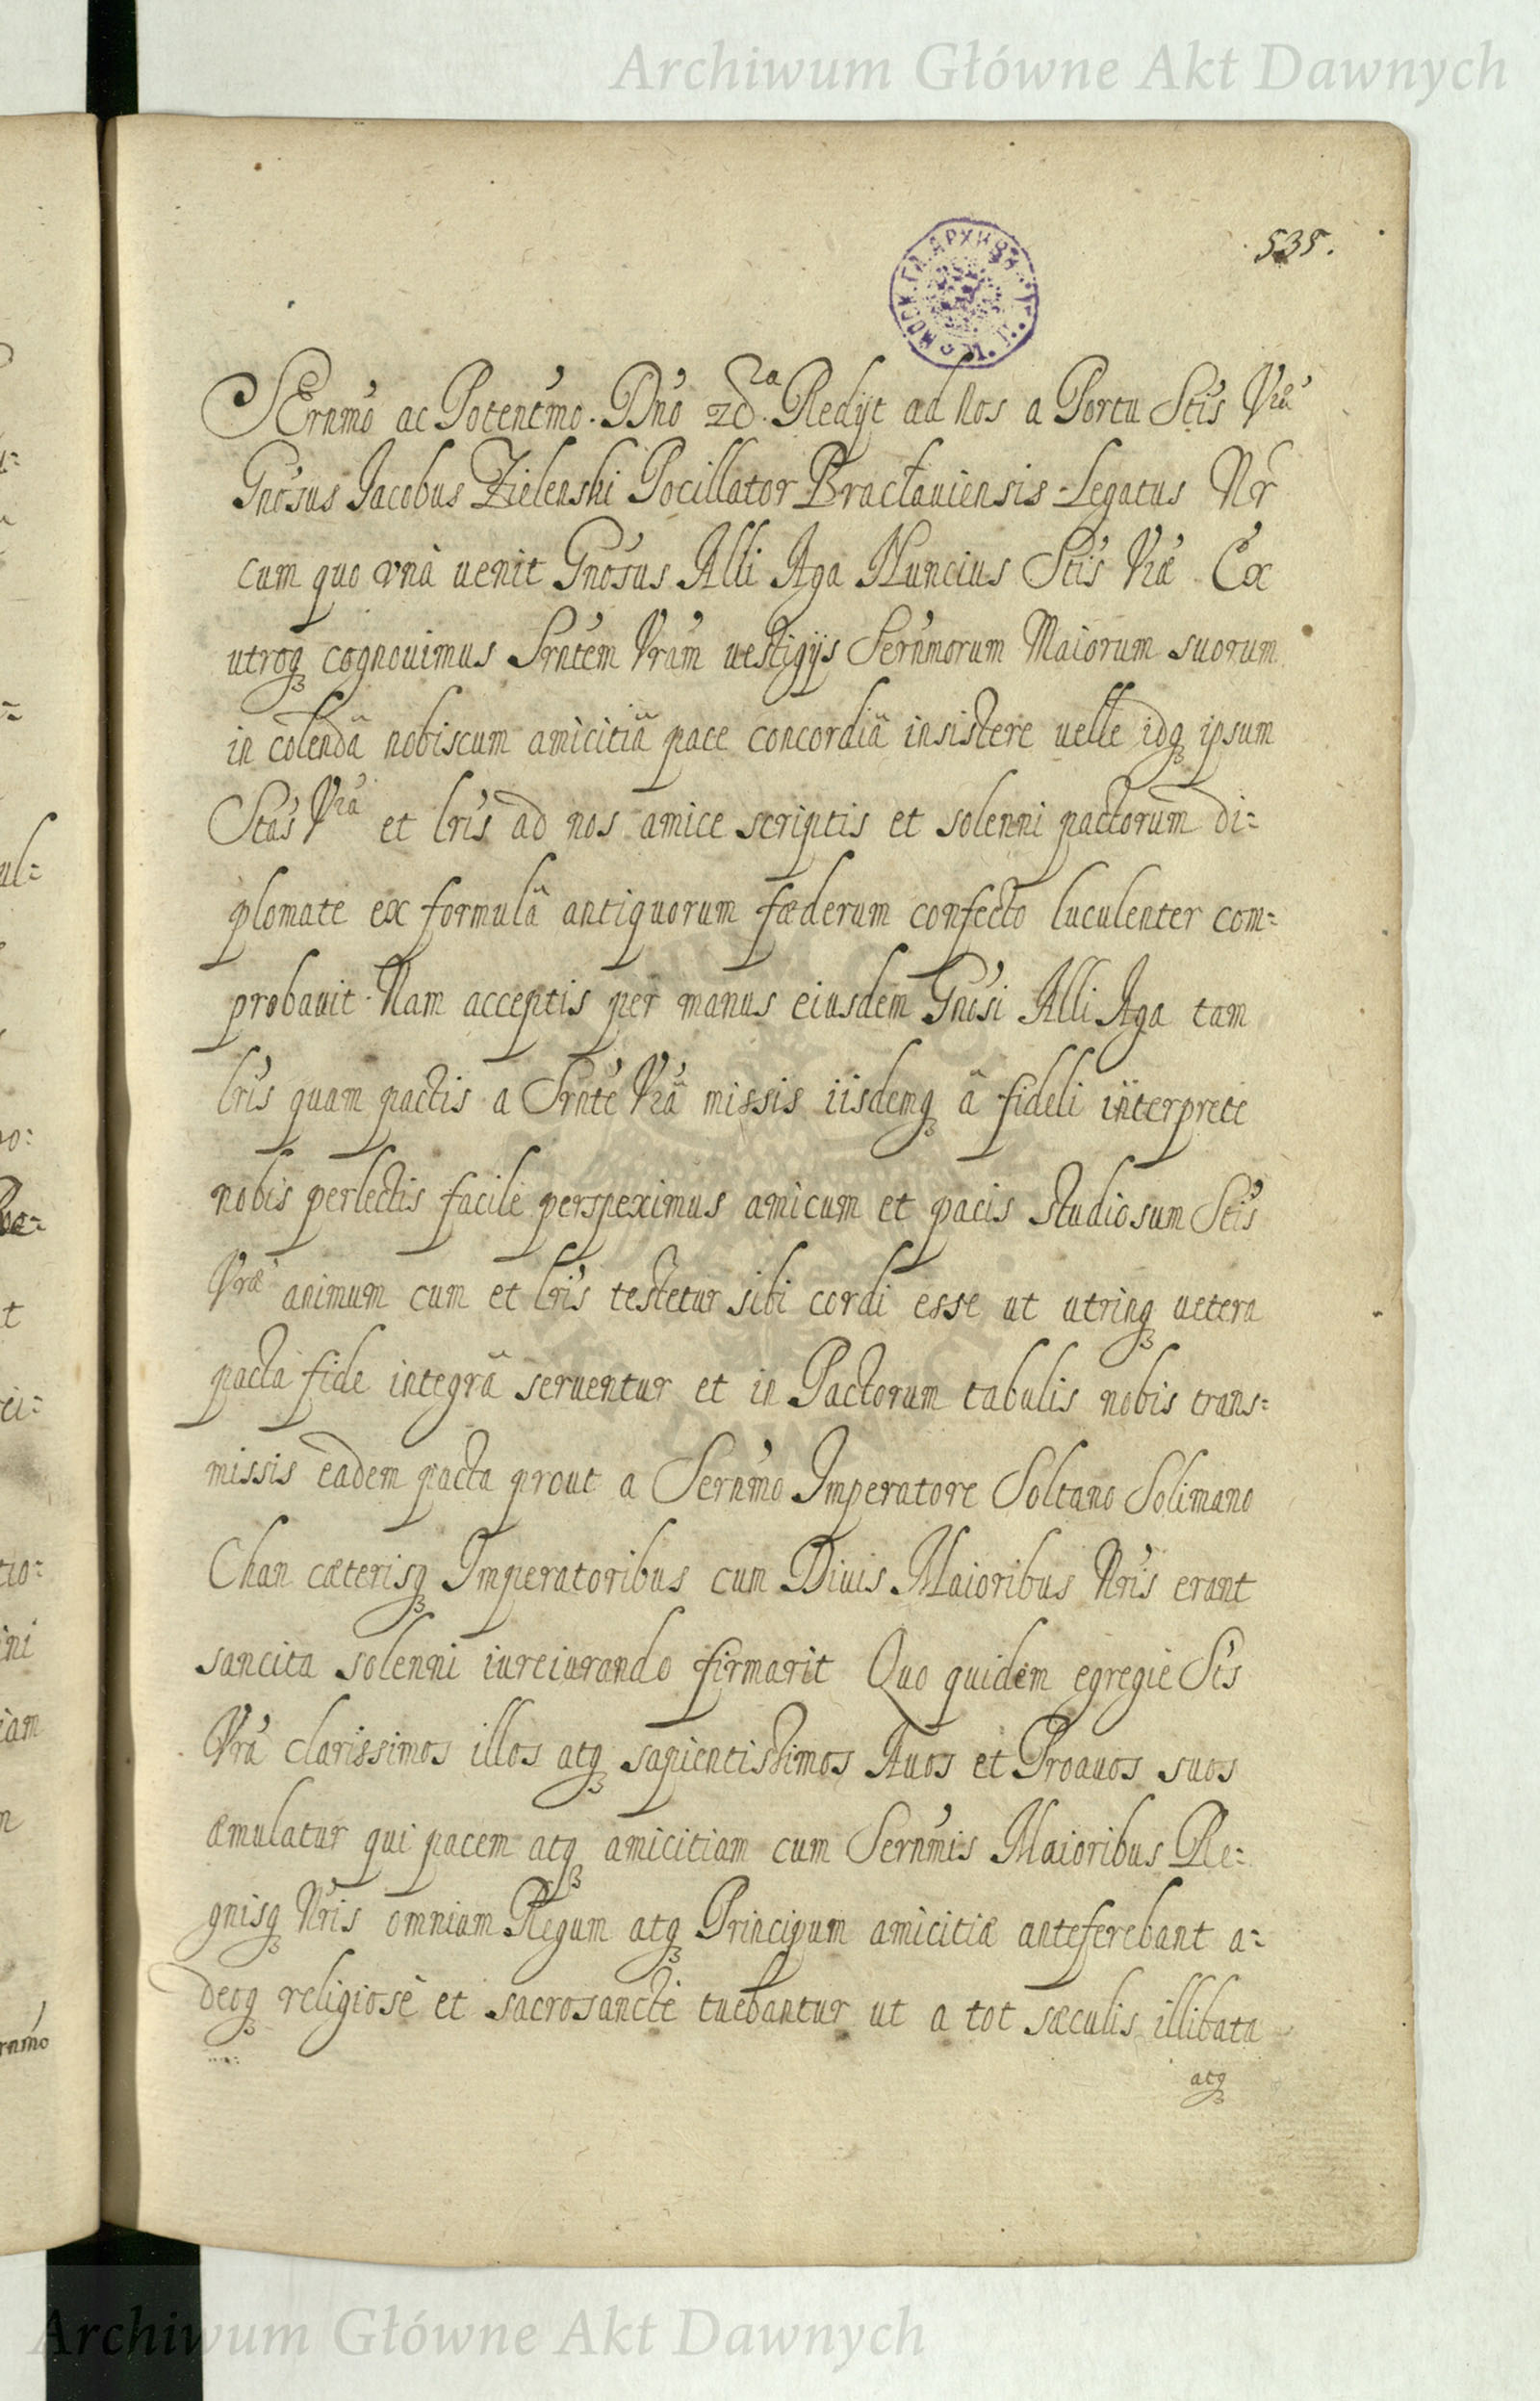 Archiwum Główne Akt Dawnych
535.
SErnmo ac Potentmo. Dno Redijt ad Nos a Portu Stis Vra
Gnosus Jacobus Zielenski Pocillator Braclauiensis Legatus Nr
cum quo vnà uenit Gnosus Alli Aga Nuncius Stis Vrae Ex
utroq cognouimus Srntem Vram uestigijs Sernmorum Maiorum suorum
in colendâ nobiscum amicitiâ pace concordiâ insistere uelle idq ipsum
Stas Vra et lris ad nos amice scriptis et solenni pactorum di=
plomate ex formulâ antiquorum fæderum confecto luculenter com=
probauit. Nam acceptis per manus eiusdem Gnosi Alli Aga tam
lris quam pactis a Srnte Vrâ missis iisdemq â fideli interprete
nobis perlectis facile perspeximus amicum et pacis studiosum Stis
Vræ animum cum et lris testetur sibi cordi esse ut utrinq uetera
pacta fide integrâ seruentur et in Pactorum tabulis nobis trans=
missis eadem pacta prout a Sernmo Imperatore Soltano Solimano
Chan cæterisq Imperatoribus cum Diuis Maioribus Nris erant
sancita solenni iureiurando firmarit Quo quidem egregie Sts
Vra clarissimos illos atq sapientissimos Auos et Proauos suos
æmulatur qui pacem atq amicitiam cum Sernmis Maioribus Re=
gnisq Nris omnium Regum atq Principum amicitiæ anteferebant a=
deoq religiosè et sacrosanctè tuebantur ut a tot sæculis illibata
atq
Archiwum Główne Akt Dawnych